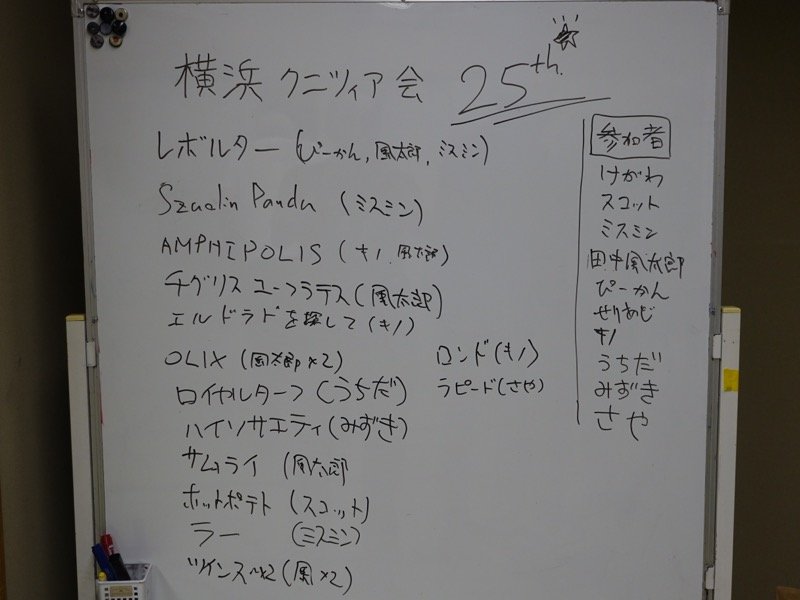 横浜 クニツィア会 25th.
レボルター (ぴーかん, 風太郎, ミスミン)
Szualin Panda (ミスミン)
AMPHIPOLIS (キノ, 風太郎)
チグリス ユーフラテス (風太郎)
エルドラドを探して (キノ)
OLIX (風太郎 ×2)
ロイヤルターフ (うちだ)
ハイソサエティ (みずき)
サムライ (風太郎
ホットポテト (スコット)
ラー (ミスミン)
(風×2)
ロンド (キノ)
ラピード (さや)
参加者
けがわ
スコット
ミスミン
田中風太郎
ぴーかん
せりあじ
キノ
うちだ
みずき
さや